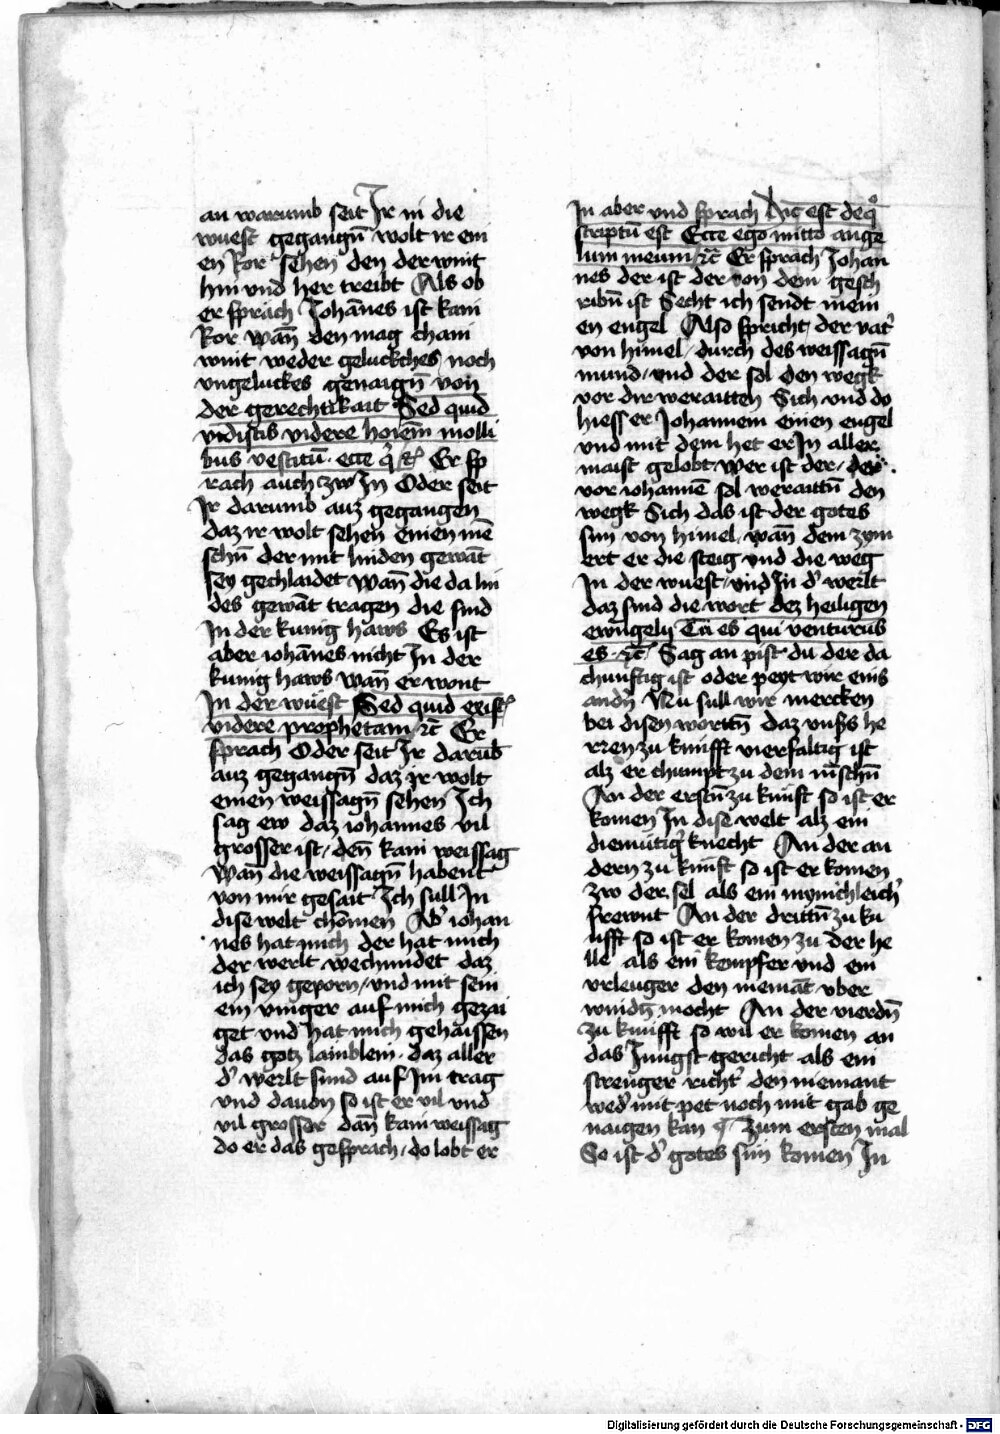 an warumb seit Jr in die
wuest gegangn̄ wolt ir ein
en Ror sehen den der wint
hin vnd her treibt Als ob
er sprach Johān̄es ist kain
Ror wan̄ den mag chain
wint weder geluckches noch
vngeluckes genaign̄ von
der gerechtikait Sed quid
vidistis videre hoīem molli
bus vestitū ecce q̄ ꝛc̄ Er sp
rach auch zw In Oder seit
Jr darumb auz gegangen
daz ir wolt sehen einen mē
schn̄ der mit linden gewāt
sey gechlaidet wan̄ die da lin
des gewāt tragen die sind
In der kunig haws Es ist
aber iohān̄es nicht In der
kunig haws wan̄ er wont
In der wuest Sed quid existꝭ
videre prophetam ꝛc̄ Er
sprach Oder seit Jr darūb
auz gegangn̄ daz ir wolt
einen weissagn̄ sehen Ich
sag ew daz iohannes vil
grosser ist / den̄ kain weissag
wan̄ die weissagn̄ habent
von mir gesait Ich sull In
dise welt chōmen Ab' iohan
nes hat mich der hat mich
der werlt wechundet daz
ich sey geporn / vnd mit sein
ein vinger auf mich gezai
get vnd hat mich gehaissen
das gotz lamblein · daz aller
d' werlt sund auf Im trag
vnd dauon so ist er vil vnd
vil grosser dan̄ kain weissag
do er das gesprach / do lobt er
In aber vnd sprach hic̄ est de q°
scriptū est Ecce ego mitto ange
lum meum ꝛc̄ Er sprach Johan
nes der ist der von dem gesch
ribn̄ ist Secht ich sendt mein
en engel Also spricht der vat'
von himel / durch des weissagn̄
mund / vnd der sol den wegk
vor dir weraitten Sich vnd do
hiess er Johannem einen engel
vnd mit dem het er In aller
maist gelobt wer ist der / der
vor iohannē sol weraittn̄ den
wegk Sich das ist der gotes
sun von himel / wan̄ dem zym
ert er die steig vnd die weg
In der wuest / vnd In d' werlt
daz sind die wort dez heiligen
ewngelij Tu es qui venturus
es ꝛc̄ Sag an pist du der da
chunftig ist oder peyt wir eins
andn̄ Nu sull wir mercken
bei disen wortn̄ daz vnss he
rren zu kunfft vierfaltig ist
alz er chumpt zu dem mēschn̄
An der erstn̄ zu kunft so ist er
komen In dise welt alz ein
diemütig' knecht An der an
dern zu kunft so ist er komen
zw der sel als ein mynichleich'
frewnt An der drittn̄ zu ku
nfft so ist er komen zu der he
lle als ein kempfer vnd ein
vrleuger den niemāt vber
windtz mocht An der vierdn̄
zu kunfft so wil er komen an
das Jungst gericht als ein
strenger richt' den niemant
wed' mit pet noch mit gab ge
naigen kan ¶ Zum ersten mal
So ist d' gotes sun komen In
Digitalisierung gefördert durch die Deutsche Forschungsgemeinschaft - DFG